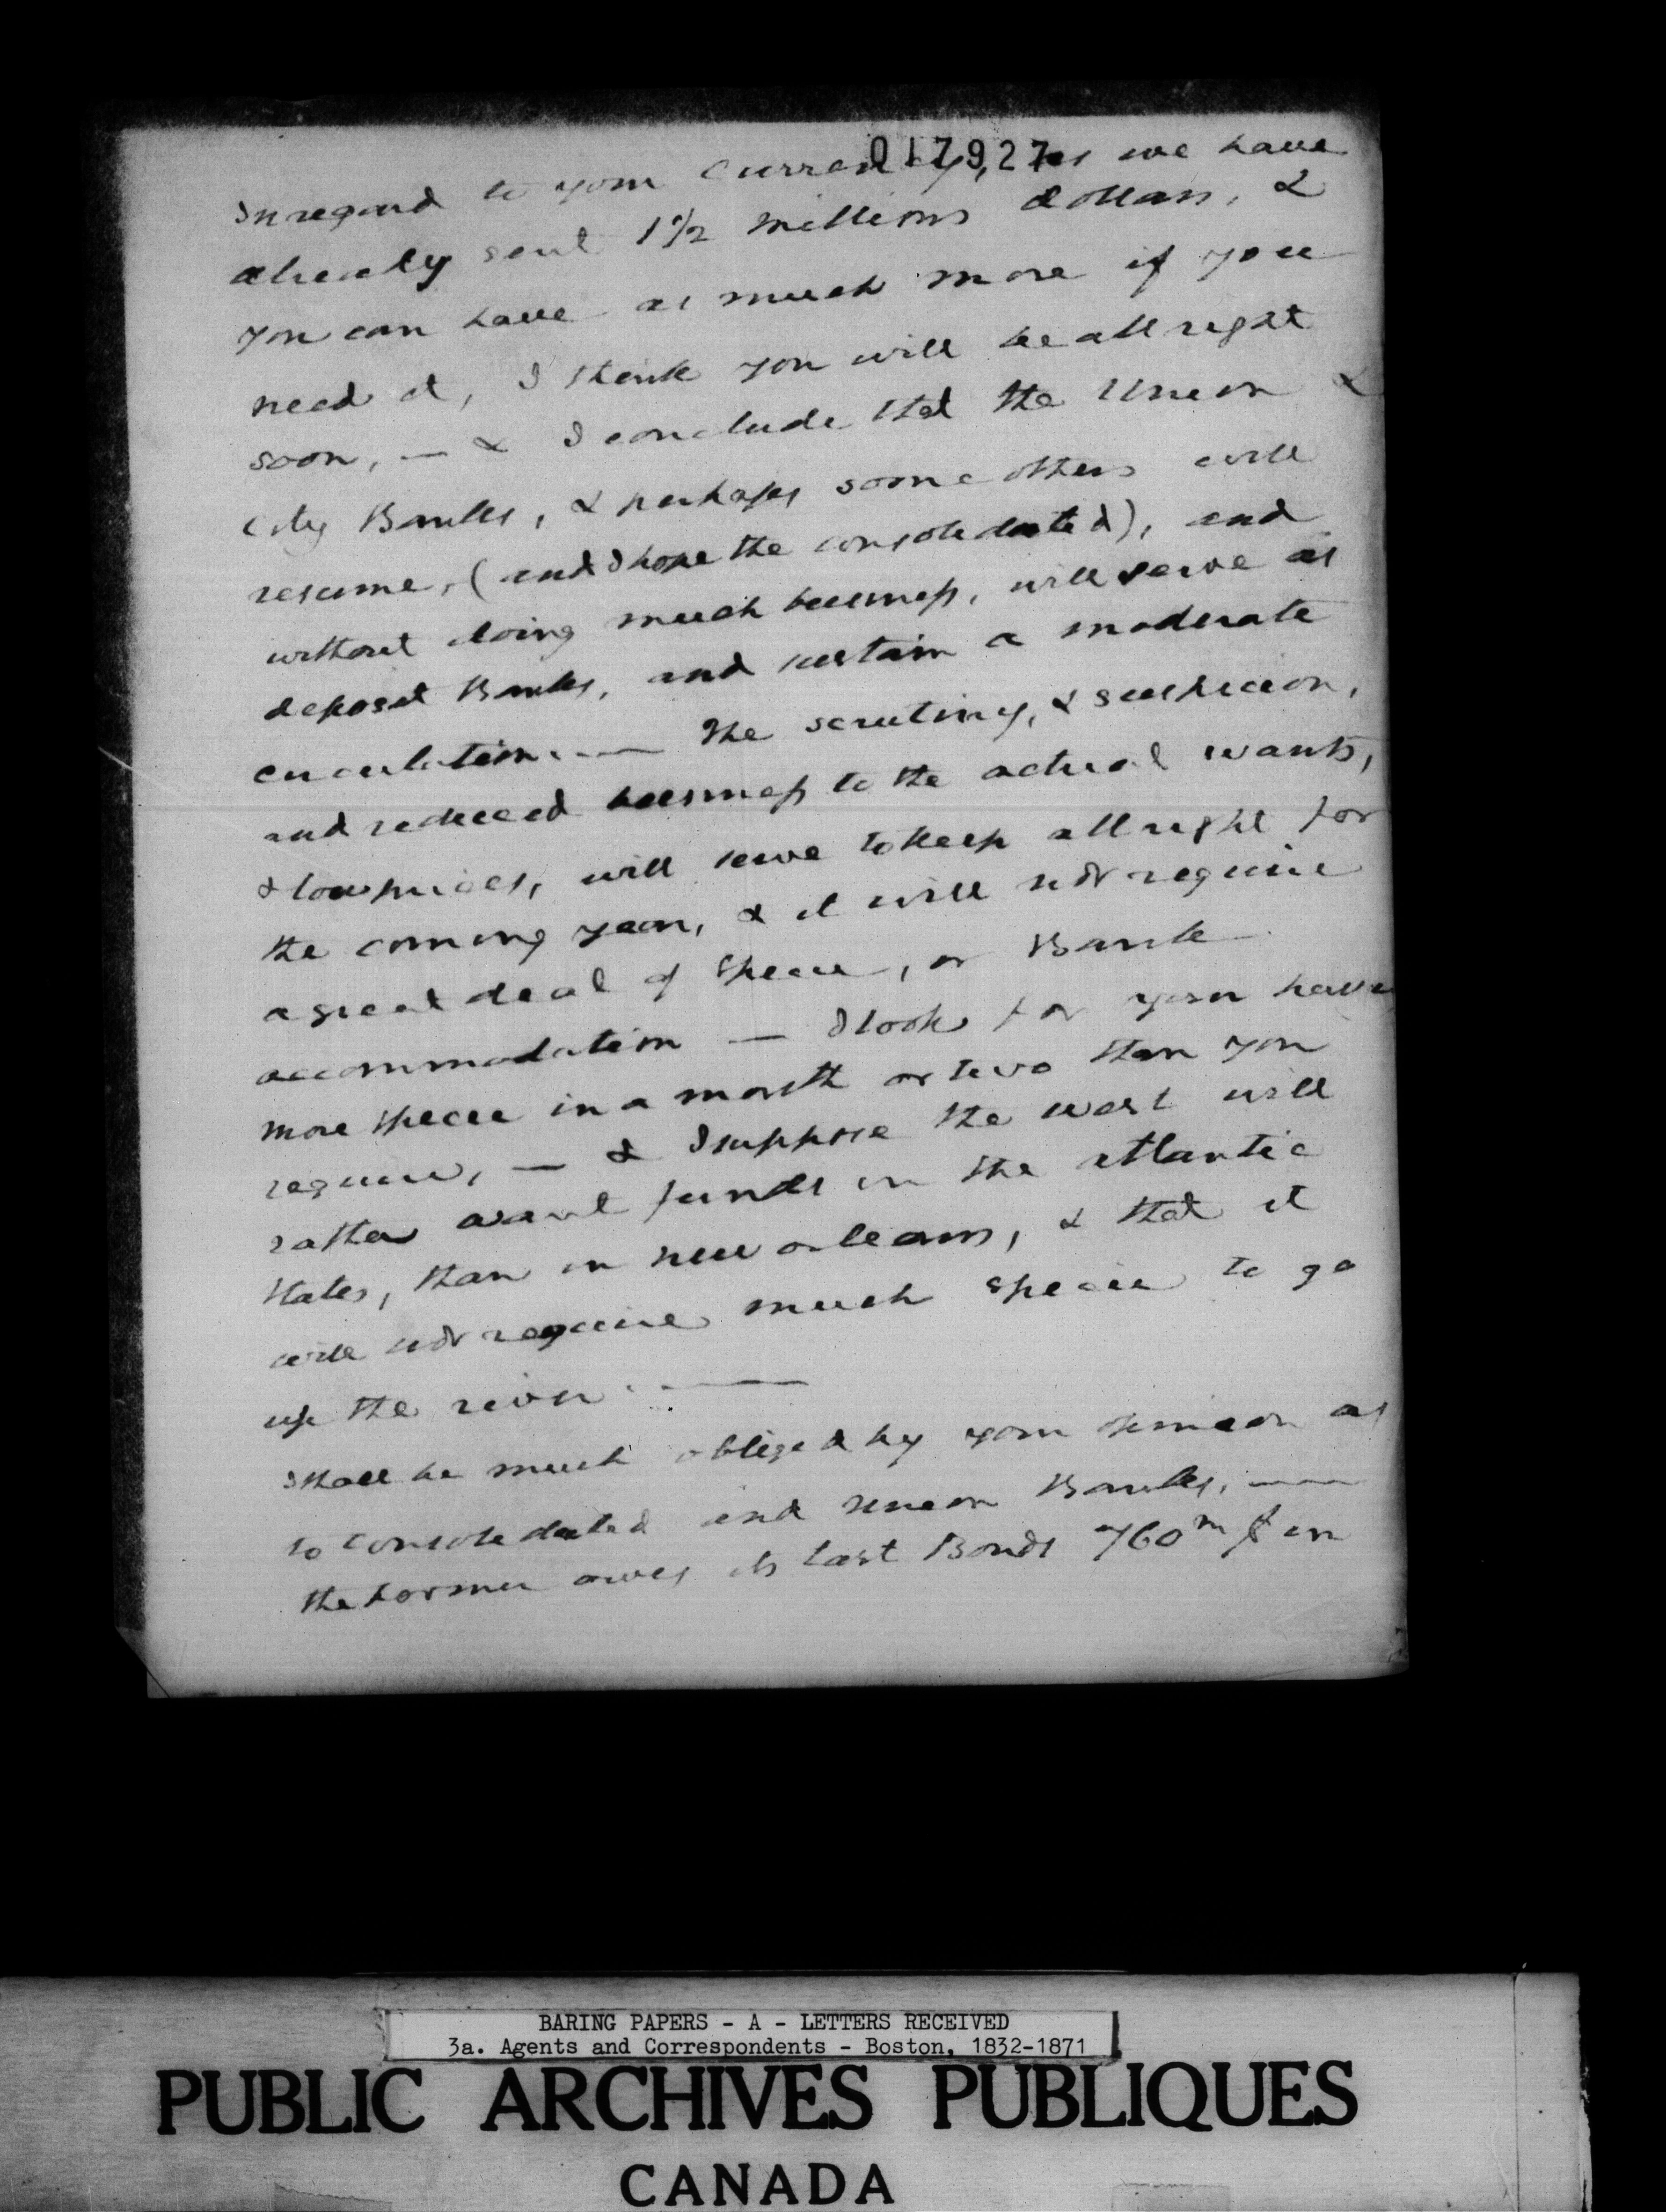 017927
In regard to your currency, as we have
already sent 1 1/2 millions dollars, &
you can have as much more if you
need it, I think you will be all right
soon, — & I conclude that the Union &
City Banks, & perhaps some others will
resume, (and I hope the consolidated), and
without doing much business, will serve as
deposit Banks, and sustain a moderate
circulation. — The scrutiny, & suspicion,
and reduced business to the actual wants,
& low prices, will serve to keep all right for
the coming year, & it will not require
a great deal of specie, or Bank
accommodation — I look for your have
more specie in a month or two than you
require, — & I suppose the west will
rather want funds in the atlantic
states, than in new orleans, & that it
will not require much specie to go
up the river. —
Shall be much obliged by your opinion as
to consolidated and union Banks, —
the former owes its last Bonds 760m $ in
BARING PAPERS - A - LETTERS RECEIVED
3a. Agents and Correspondents - Boston, 1832-1871
PUBLIC ARCHIVES PUBLIQUES
CANADA